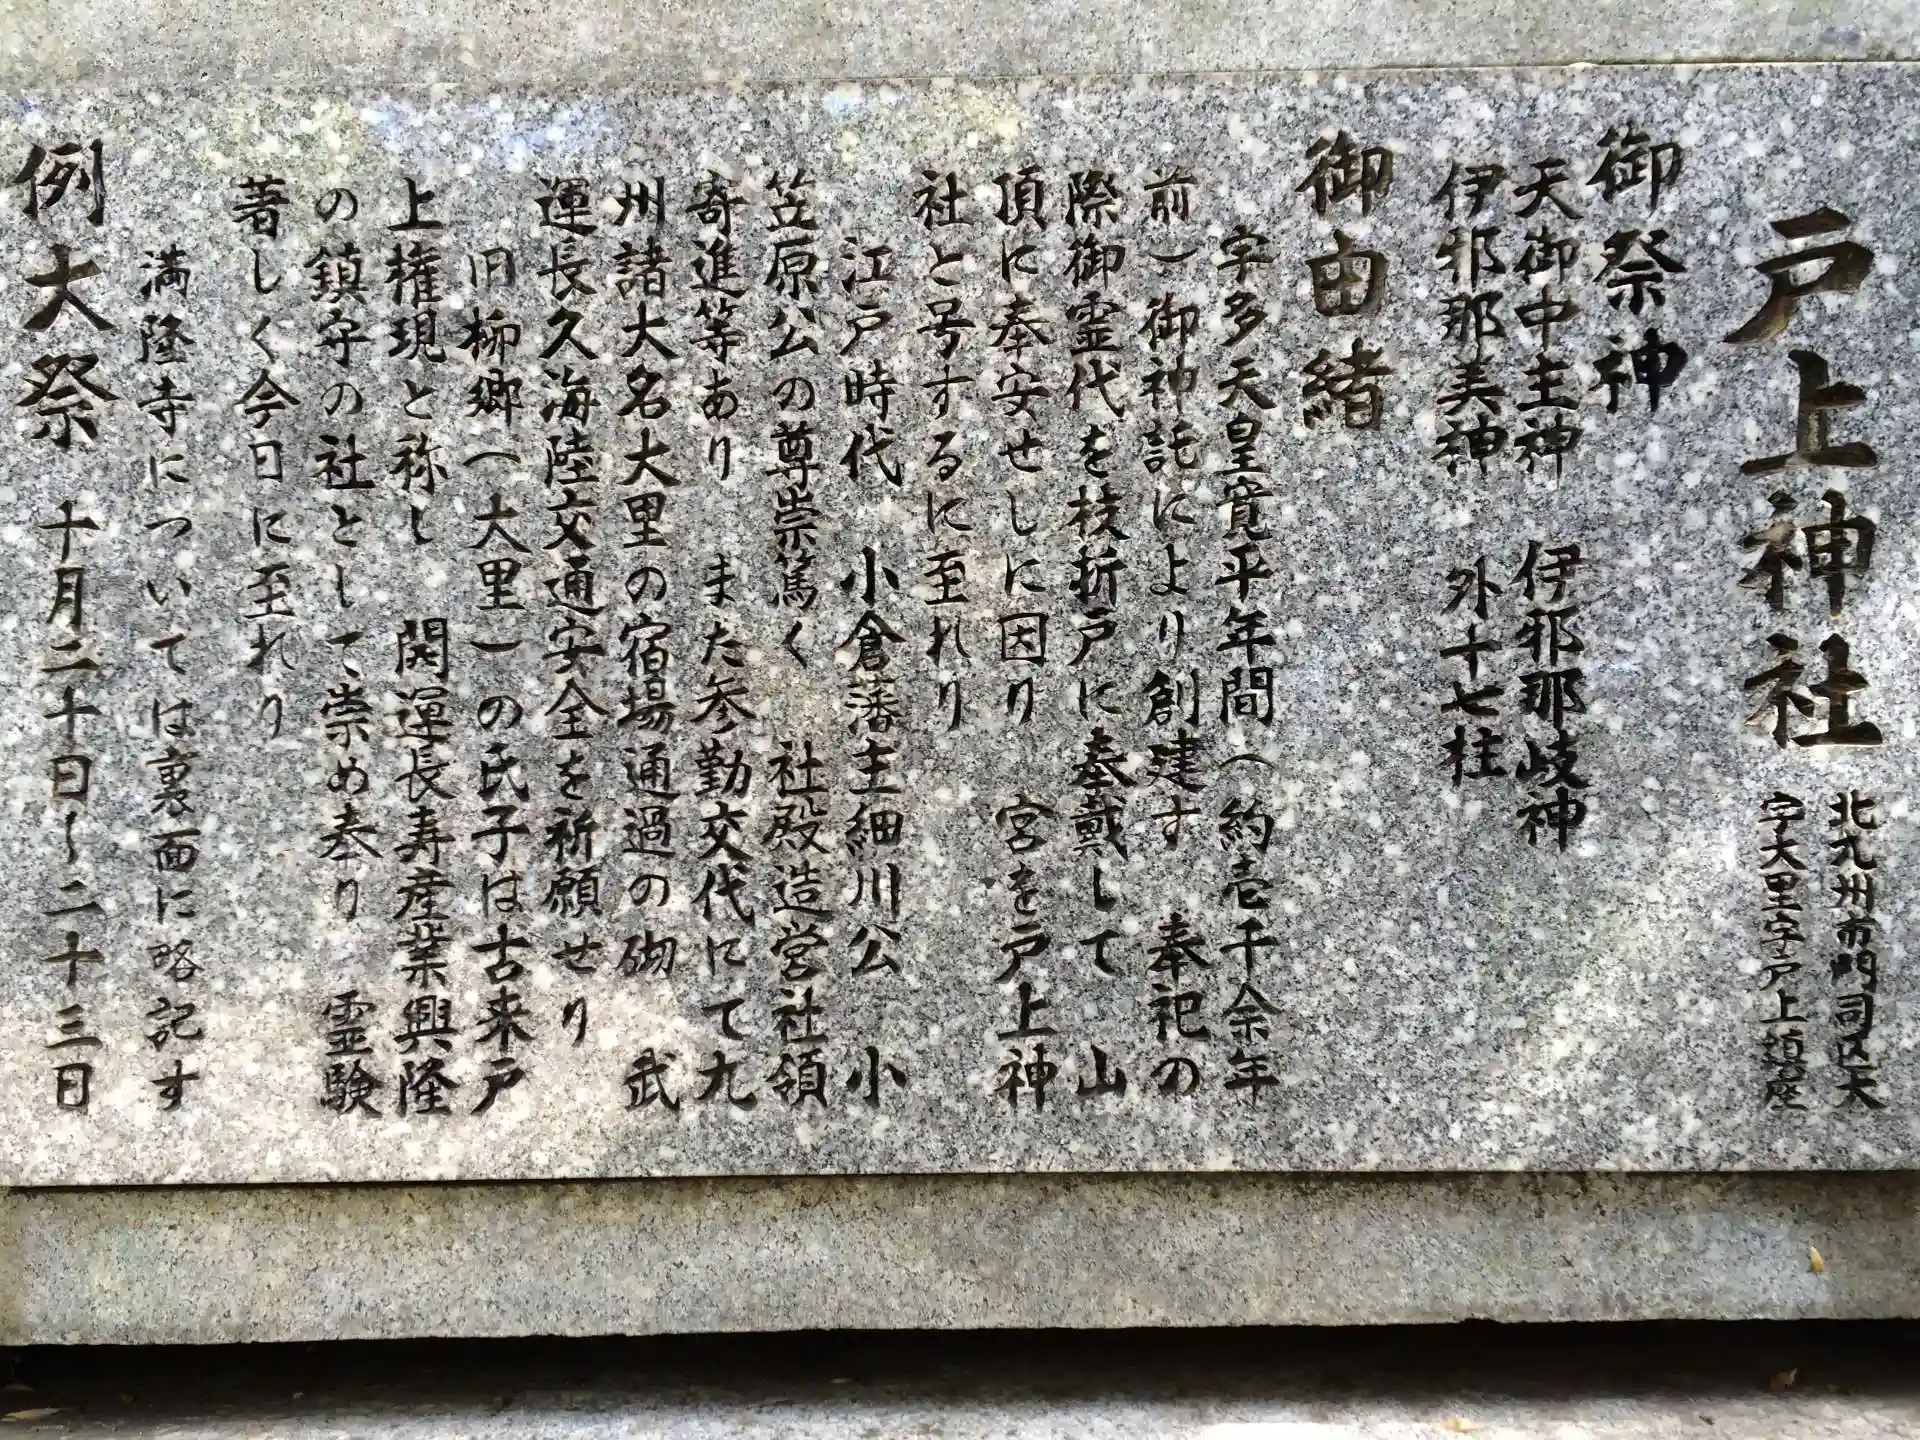 戸上神社
北九州市門司区大
字大里字戸上鎮座
御祭神
天御中主神　伊邪那岐神
伊邪那美神　外十七柱
御由緒
宇多天皇寛平年間(約壱千余年
前)御神託により創建す　奉祀の
際御霊代を枝折戸に奉戴して山
頂に奉安せしに因り　宮を戸上神
社と号するに至れり
江戸時代　小倉藩主細川公　小
笠原公の尊崇篤く　社殿造営社領
寄進等あり　また参勤交代にて九
州諸大名大里の宿場通過の砌　武
運長久海陸交通安全を祈願せり
旧柳郷(大里)の氏子は古来戸
上権現と称し　開運長寿産業興隆
の鎮守の社として崇め奉り　霊験
著しく今日に至れり
満隆寺については裏面に略記す
例大祭　十月二十日～二十三日